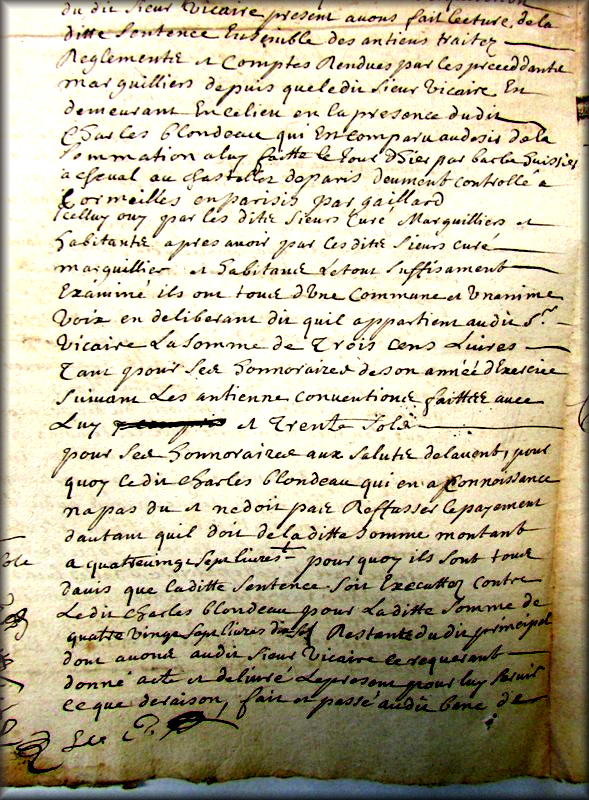 du dit Sieur Vicaire present avons fait lecture de la
ditte Sentence Ensemble des antiens traitez
Reglements et Comptes Rendues par les preceddants
marguilliers depuis que ledit Sieur Vicaire En
demeurant En ce lieu en la presence dudit
Charles blondeau qui En comparu au desir de la
Sommation a luy faitte le Jour d'hier par barla huissier
a cheval au chastellet de paris deument controllé a
Cormeilles en parisis par gaillard
Icelluy ouy par les dits Sieurs Curé Marguilliers et
habitants apres avoir par lesdits Sieurs curé
marguilliers et habitans Letout Suffisament
Examiné ils ont tous d'Une Commune et Unanime
Voix en deliberant dit quil appartient audit Sr
Vicaire La Somme de Trois Cens Livres
Tant pour Ses honnoraires de son année d'Exercice
Suivant Les antienne Conventions faittes avec
Luy et Trente Sols
pour Ses honnoraires aux Saluts de lavent, pour
quoy ledit Charles blondeau qui en a Connoissance
na pas du et ne doit pas Reffusser le payement
dautant quil doit de la ditte Somme montant
a quatrevingt Sept livres pourquoy ils Sont tous
davis que laditte Sentence Soit Executtez Contre
Ledit Charles blondeau pour Laditte Somme de
quatre vingt Sept livres dix sols Restants du dit principal
dont avons audit Sieur Vicaire ce requerant
donné acte et delivré Le present pour luy Servir
ce que de raison, fait et passé audit banc de